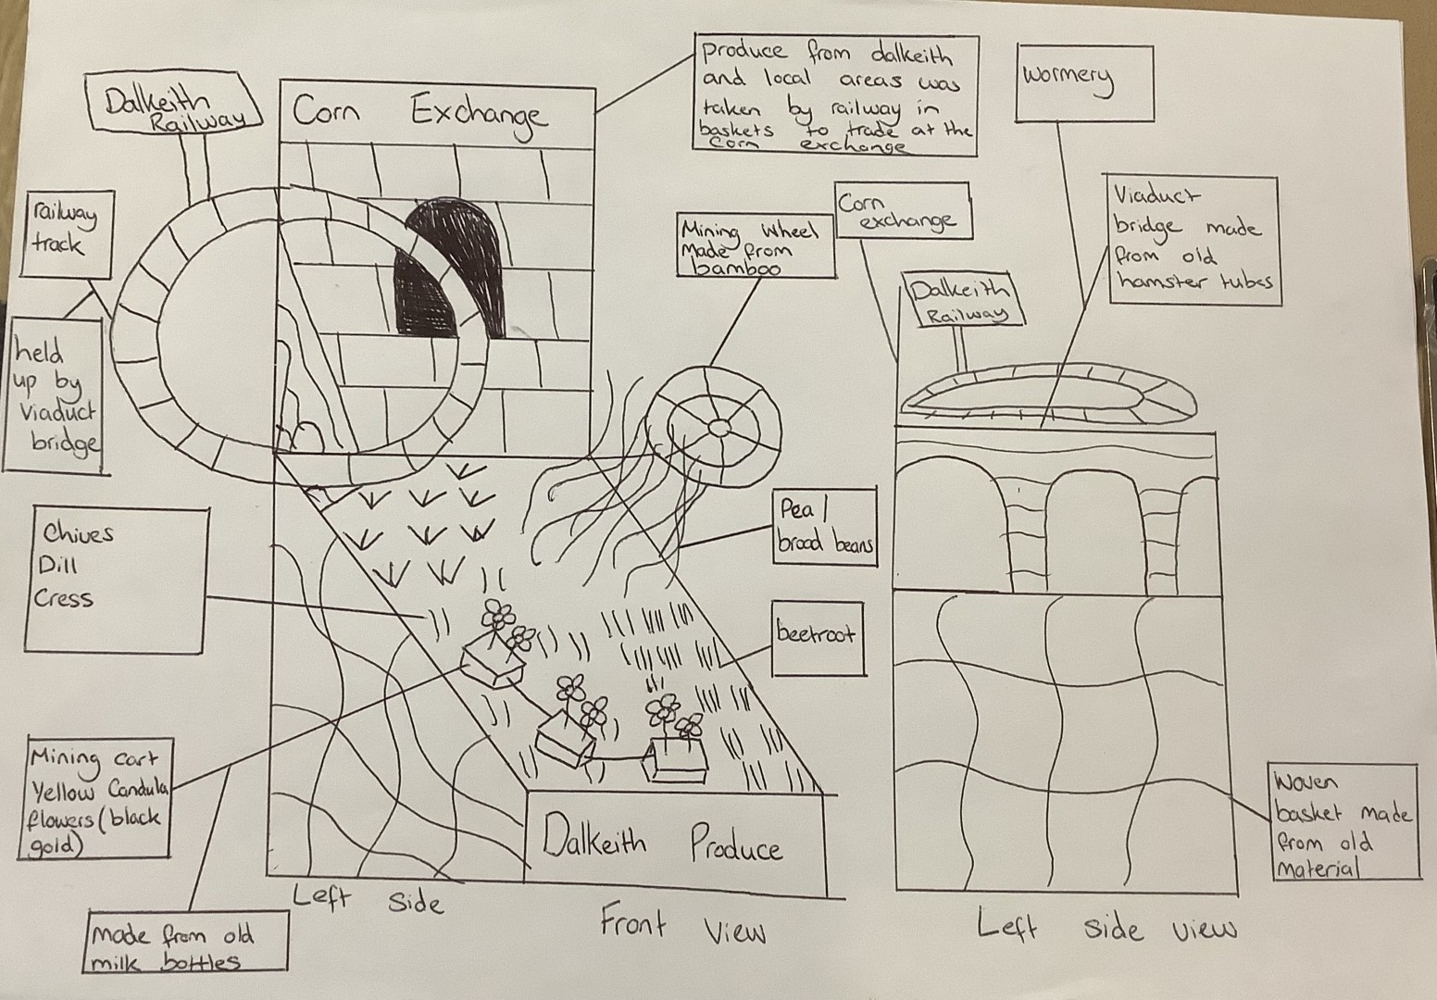 Dalkeith
Railway
Corn Exchange
produce from dalkeith
and local areas was
taken by railway in
baskets to trade at the
corn exchange
wormery
railway
track
Mining Wheel
Made from
bamboo
Corn
exchange
Viaduct
bridge made
from old
hamster tubes
Dalkeith
Railway
held
up by
viaduct
bridge
Chives
Dill
Cress
Pea /
broad beans
beetroot
Mining cart
Yellow Candula
flowers (black
gold)
Woven
basket made
from old
material
Dalkeith Produce
Left Side
Front View
Left side view
made from old
milk bottles